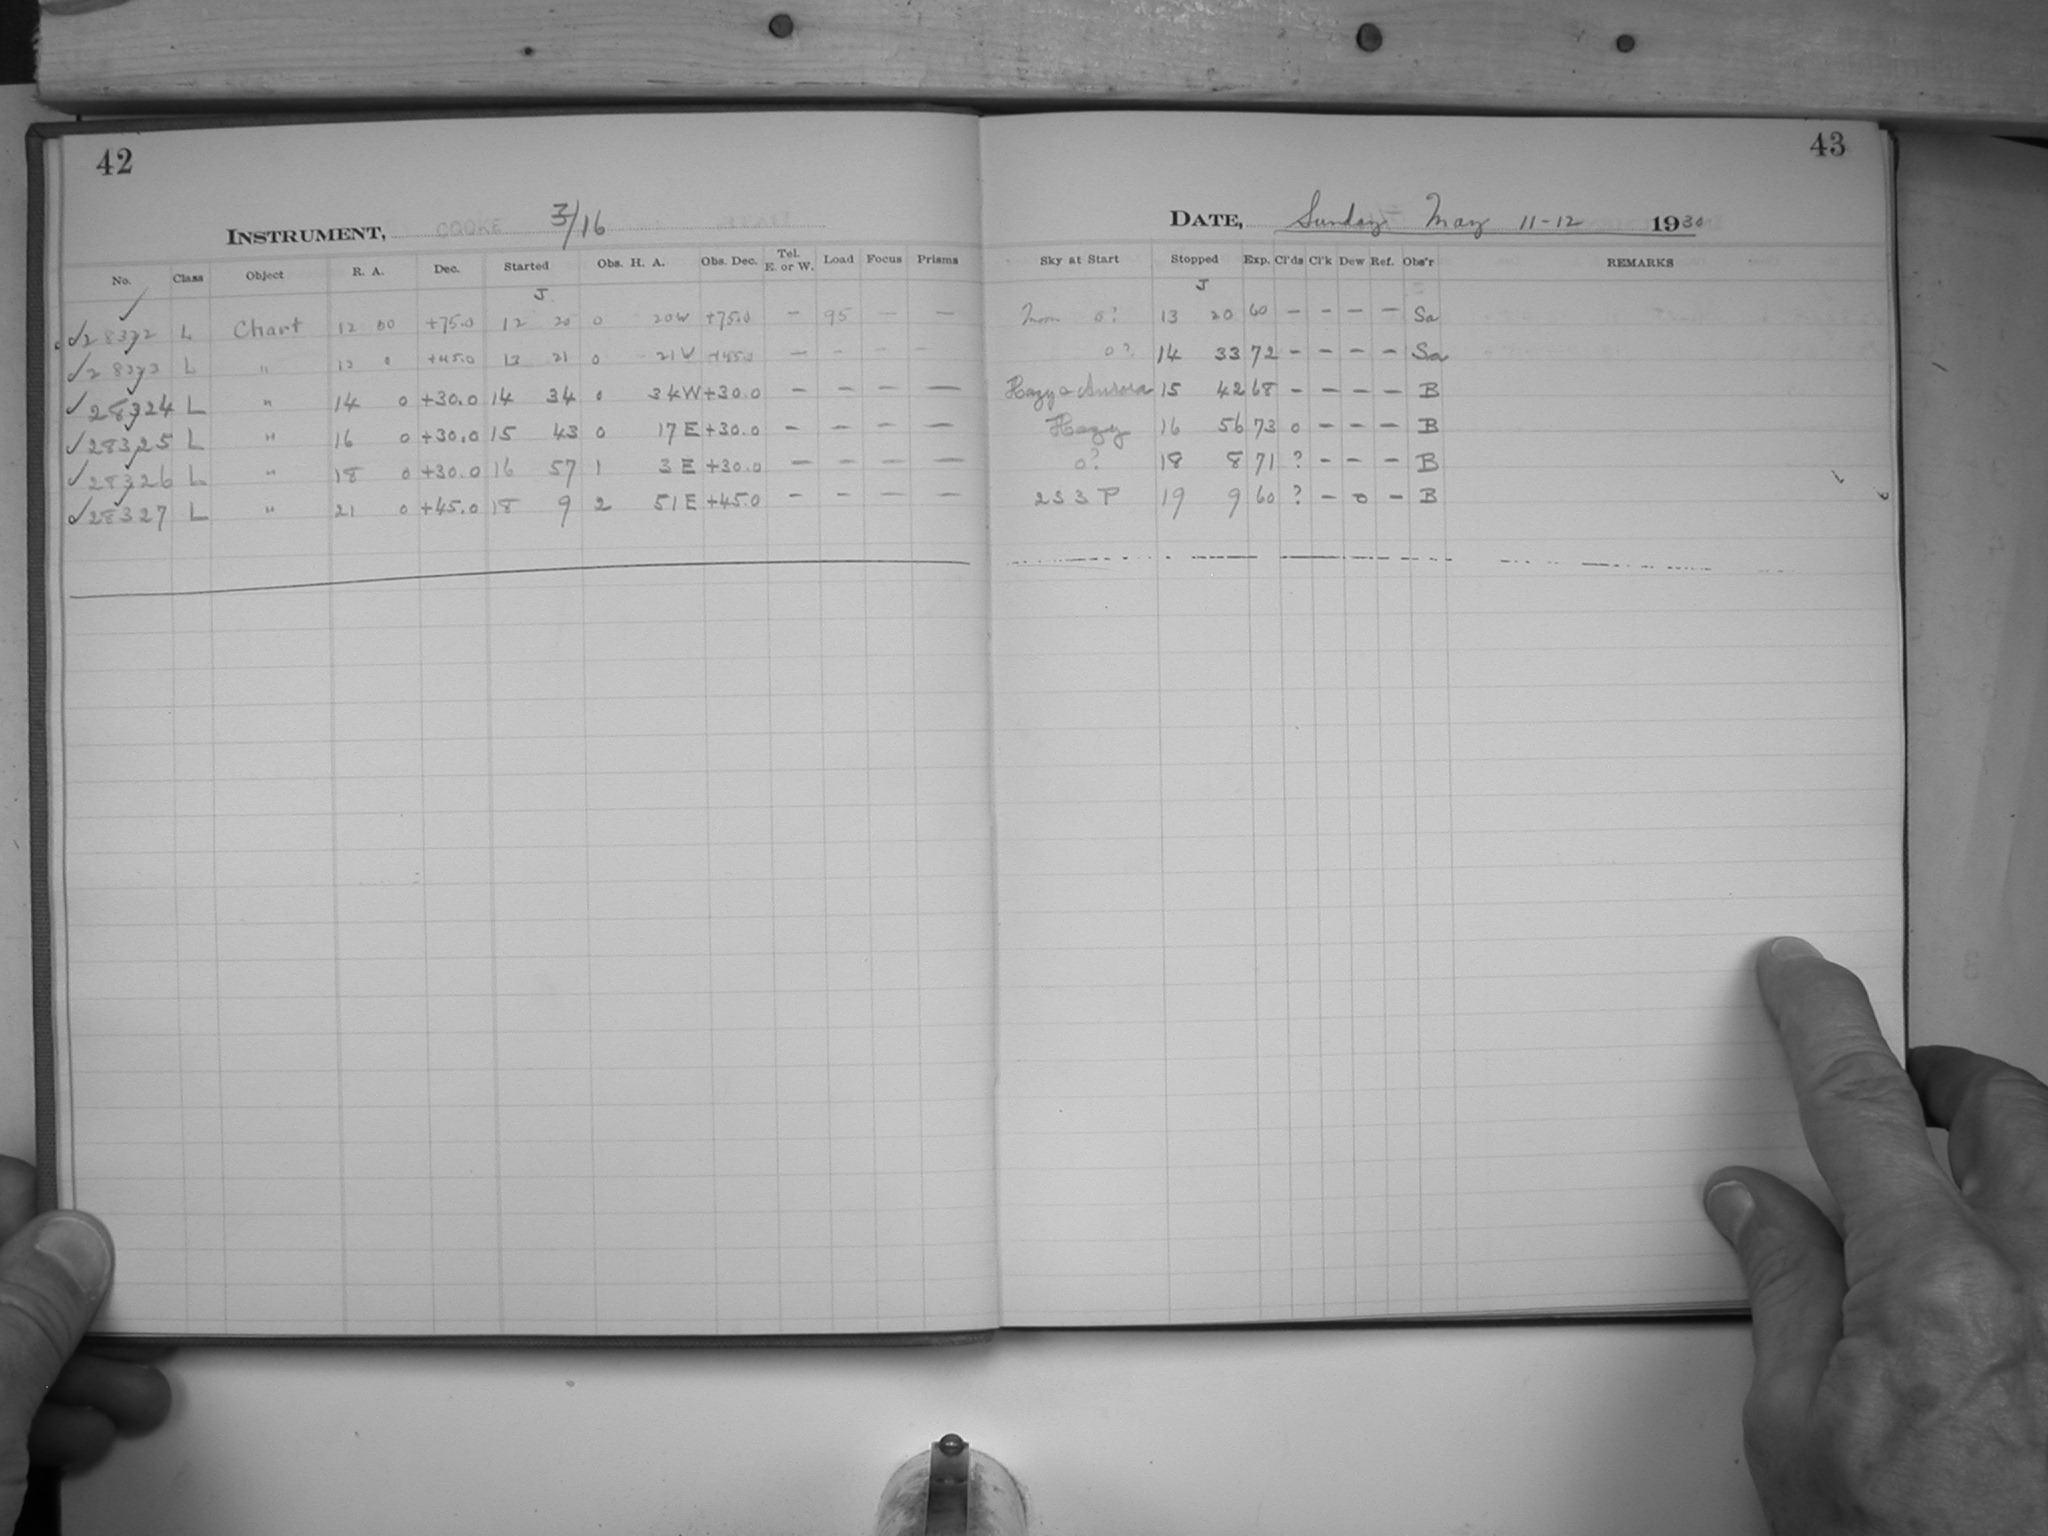 42
INSTRUMENT, COOKE 3/16
No. Class Object R. A. Dec. Started Obs. H. A. Obs. Dec. Tel. E. or W. Load Focus Prisms
J
✓28322 L Chart 12 00 +75.0 12 20 0 20W +75.0 – 95 – –
✓28323 L " 13 0 +45.0 13 21 0 21W +45.0 – – – –
✓28324 L " 14 0 +30.0 14 34 0 34W +30.0 – – – –
✓28325 L " 16 0 +30.0 15 43 0 17E +30.0 – – – –
✓28326 L " 18 0 +30.0 16 57 1 3E +30.0 – – – –
✓28327 L " 21 0 +45.0 18 9 2 51E +45.0 – – – –
43
DATE, Sunday May 11-12 1930
Sky at Start Stopped Exp. Cl'ds Cl'k Dew Ref. Obs'r REMARKS
J
Moon 0? 13 20 60 – – – – Sa
0? 14 33 72 – – – – Sa
Hazy & Aurora 15 42 68 – – – – B
Hazy 16 56 73 0 – – – B
0? 18 8 71 ? – – – B
2 S 3 P 19 9 60 ? – 0 – B